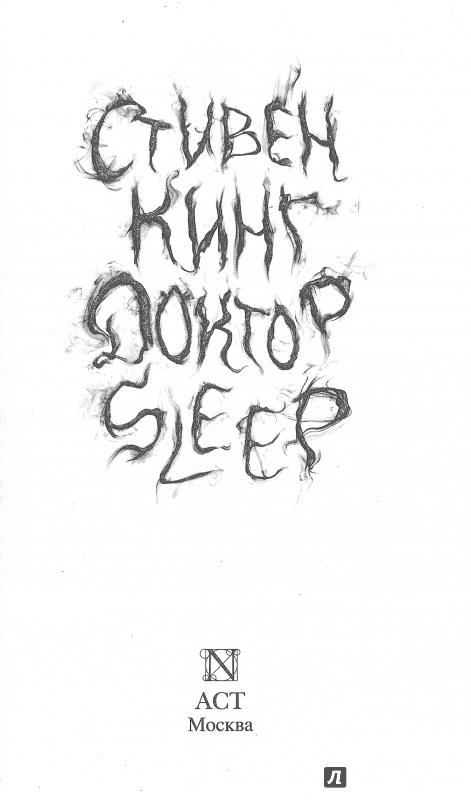 СТИВЕН
КИНГ
ДОКТОР
SLEEP
N
АСТ
Москва
Л